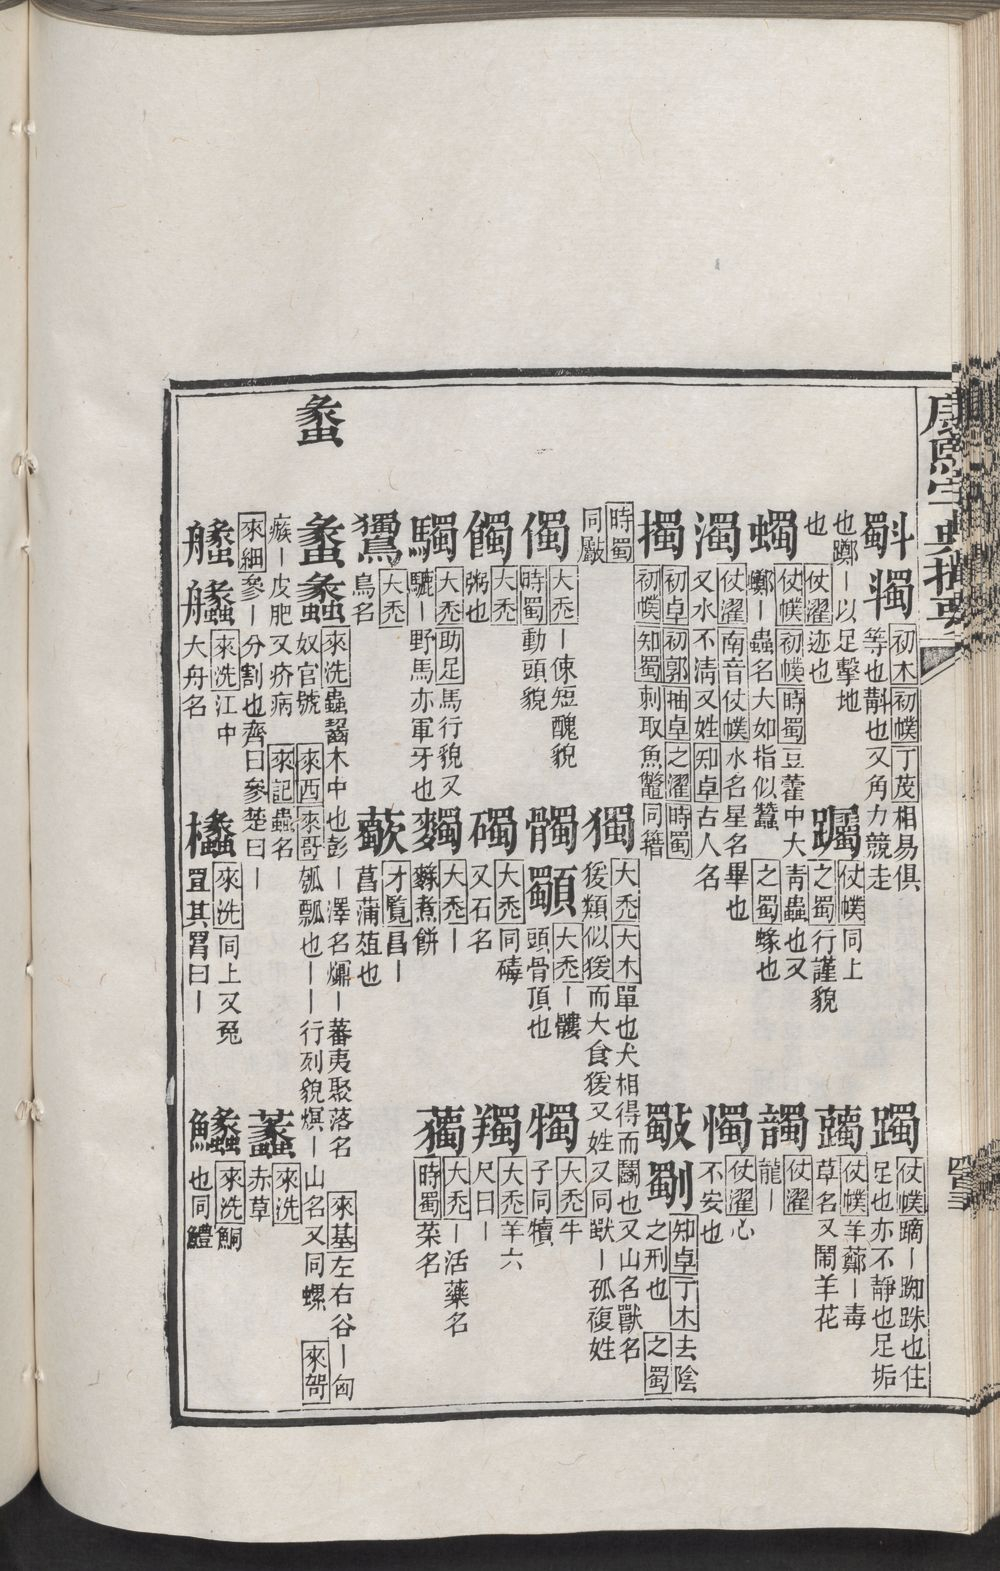 康熙字典撮要
斣 㹱 初木 初幞 丁茂 相易俱
等也斠也又角力競走
躅 仗幞 同上
之蜀 行謹貌
躅 仗幞 蹢丨踟跦也住
足也亦不靜也足垢
也躑丨以足擊地
也 仗濯 迹也
蠋 仗幞 初幞 時蜀 豆藿中大青蟲也又
蠾丨蟲名大如指似蠶 之蜀 蝝也
濁 仗濯 南音 仗幞 水名星名畢也
又水不清又姓 知卓 古人名
擉 初卓 初郭 柚卓 之濯 時蜀
初幞 知蜀 刺取魚鼈同籍
躅 仗幞 羊躑丨毒
草名又鬧羊花
髑 仗濯
龍丨
憪 仗濯 心
不安也
斀 劅 知卓 丁木 去陰
之刑也 之蜀
時蜀
同斀
獨 大禿 大木 單也犬相得而鬭也又山名獸名
猨類似猨而大食猨又姓又同獃丨孤複姓
㒔 大禿 丨倲短醜貌
時蜀 動頭貌
髑 顝 大禿 丨髏
頭骨頂也
犢 大禿 牛
子同犢
餶 大禿
粥也
碡 大禿 同碡
又石名
羯 大禿 羊六
尺曰丨
騳 大禿 助足 馬行貌又
驌丨野馬亦軍牙也
䴱 大禿 丨
䴷煮餅
薥 大禿 丨活藥名
時蜀 菜名
鸀 大禿
鳥名
歜 才覽 昌丨
菖蒲葅也
蠡
蠡 蠡 來洗 蟲齧木中也彭丨澤名爤丨蕃夷聚落名 來基 左右谷丨匈
奴官號 來西 來哥 瓠瓢也丨丨行列貌熐丨山名又同螺 來哿
瘯丨皮肥又疥病 來記 蟲名
來細 參丨分割也齊曰參楚曰丨
蠡 來洗
赤草
艬 艬 來洗 江中
大舟名
欚 來洗 同上又兔
罝其罥曰丨
鱺 來洗 鮦
也同鱧
四百三